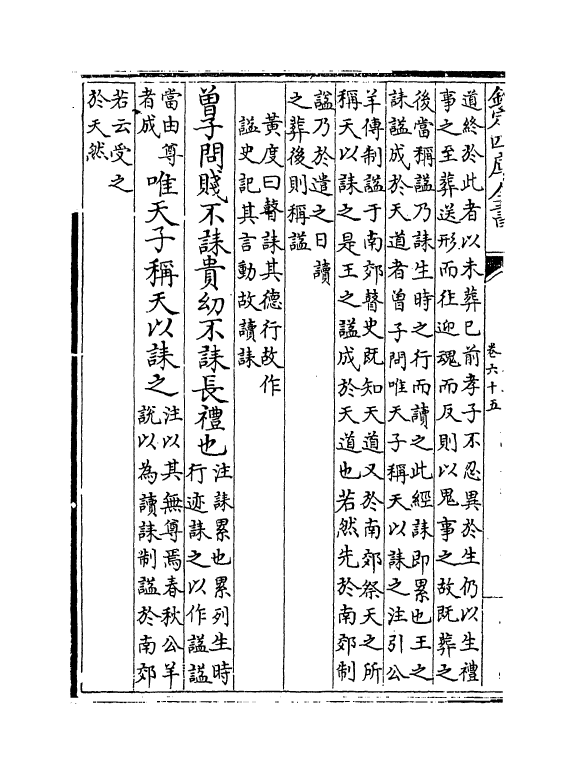 欽定四庫全書
卷六十五
道終於此者以未葬已前孝子不忍異於生仍以生禮
事之至葬送形而往迎魂而反則以鬼事之故既葬之
後當稱謚乃誄生時之行而讀之此經誄即累也王之
誄謚成於天道者曾子問唯天子稱天以誄之注引公
羊傳制謚于南郊瞽史既知天道又於南郊祭天之所
稱天以誄之是王之謚成於天道也若然先於南郊制
謚乃於遣之日讀
之葬後則稱謚
黃度曰瞽誄其德行故作
謚史記其言動故讀誄
曾子問賤不誄貴幼不誄長禮也
注誄累也累列生時
行迹誄之以作謚謚
當由尊
者成
唯天子稱天以誄之
注以其無尊焉春秋公羊
說以為讀誄制謚於南郊
若云受之
於天然